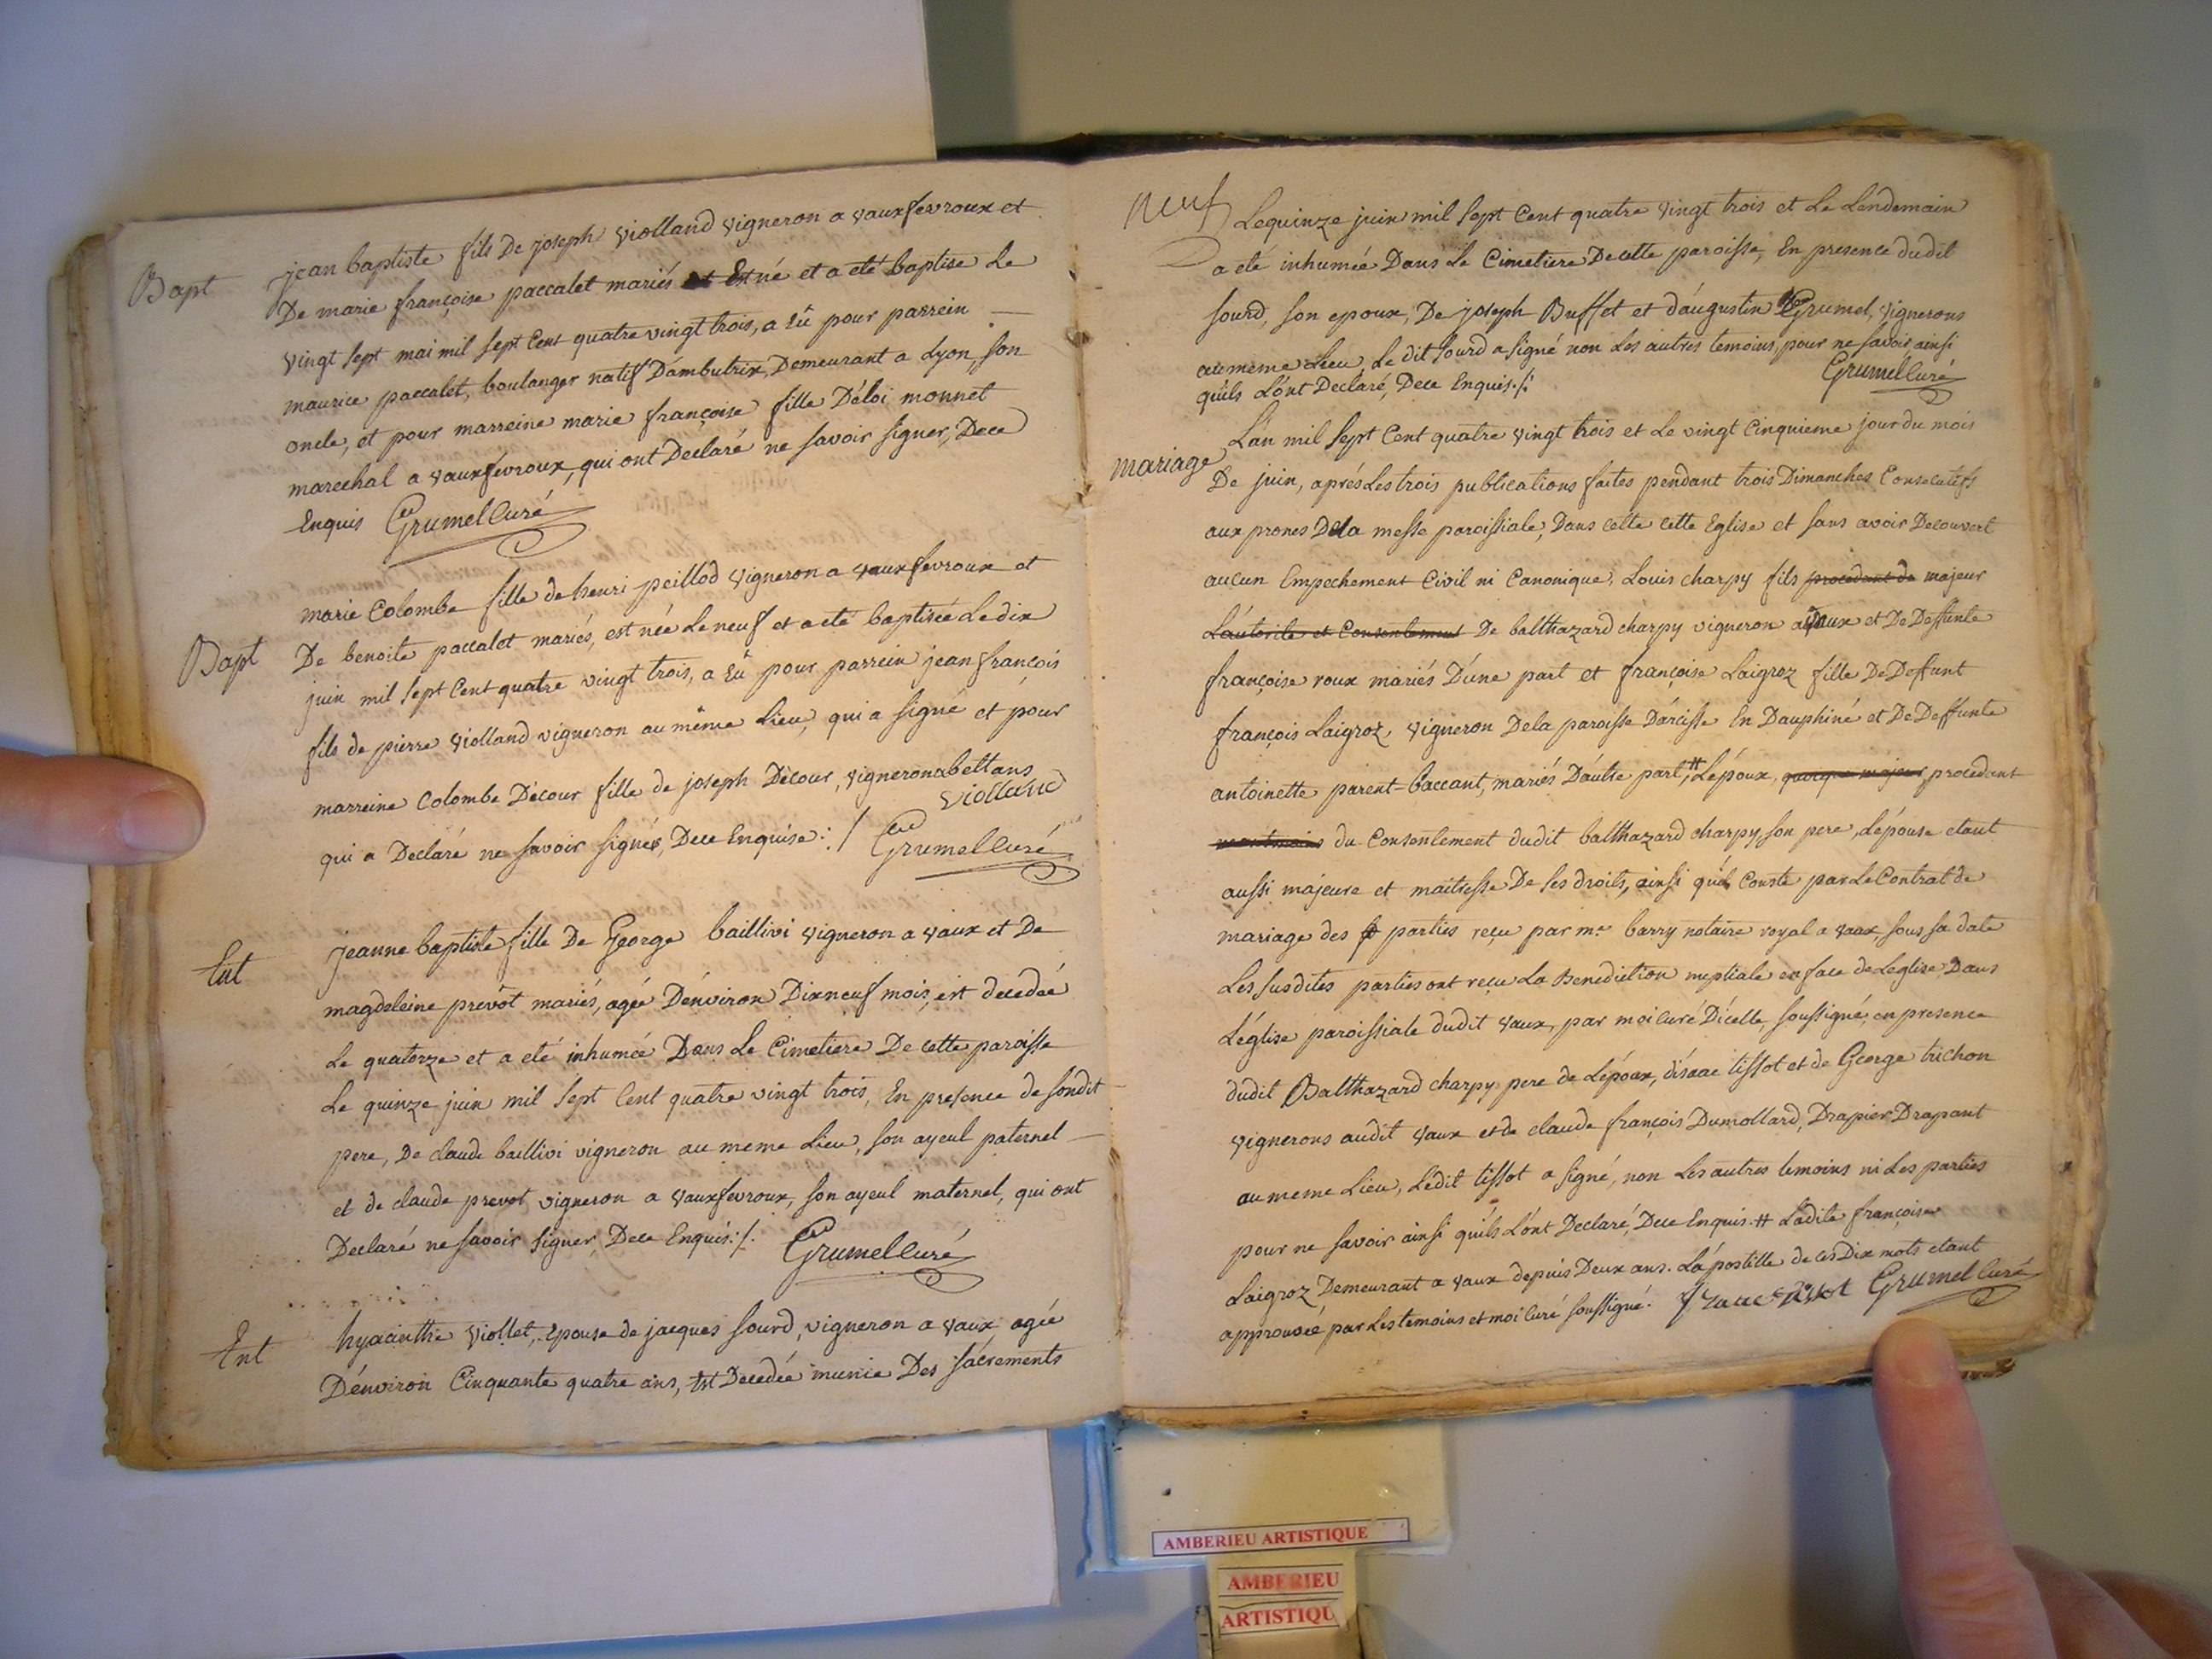 Bapt
jean baptiste fils De joseph violland vigneron a vauxfevroux et
De marie françoise paccalet mariés Est né et a eté baptise Le
vingt sept mai mil sept Cent quatre vingt trois, a Eû pour parrein
maurice paccalet, boulanger natif D'ambutrix, Demeurant a Lyon, son
oncle, et pour marreine marie françoise fille D'éloi monnet
marechal a vauxfevroux, qui ont Declaré ne savoir signer, Dece
Enquis Grumel Curé
Bapt
marie Colombe fille de henri peillod vigneron a vauxfevroux et
De benoite paccalet mariés, est née Le neuf et a eté baptisée Le dix
juin mil sept Cent quatre vingt trois, a Eû pour parrein jean françois
fils de pierre violland vigneron au même Lieu, qui a signé et pour
marreine Colombe Decour fille de joseph Decour, vigneron a bettans
violland
qui a Declaré ne savoir signer, Dece Enquise :/ Grumel Curé
Ent
Jeanne baptiste fille De George baillivi vigneron a vaux et De
magdeleine prevôt mariés, agée D'énviron Dixneuf mois, est decedée
Le quatorze et a eté inhumée Dans Le Cimetiere De cette paroisse
Le quinze juin mil sept Cent quatre vingt trois, En presence de sondit
pere, De claude baillivi vigneron au meme Lieu, son ayeul paternel
et de claude prevot vigneron a vauxfevroux, son ayeul maternel, qui ont
Declaré ne savoir signer, Dece Enquis :/. Grumel Curé
Ent
hyacinthe viollet, Epouse de jacques sourd, vigneron a vaux agée
D'énviron Cinquante quatre ans, est Decedée munie Des sacrements
neuf
Le quinze juin mil sept Cent quatre vingt trois et Le Lendemain
a eté inhumée Dans Le Cimetiere De cette paroisse, En presence dudit
sourd, son epoux, De joseph Buffet et d'augustin Grumel, vignerons
au meme Lieu, Le dit sourd a signé non Les autres temoins, pour ne savoir ainsi
qu'ils L'ont Declaré, Dece Enquis ./: Grumel Curé
mariage
L'an mil sept Cent quatre vingt trois et Le vingt Cinquieme jour du mois
De juin, aprés Les trois publications faites pendant trois Dimanches Consecutifs
aux prones De La messe paroissiale, Dans cette cette Eglise et sans avoir Decouvert
aucun Empechement Civil ni Canonique, Louis charpy fils procedant de majeur
L'autorite et Consentement De balthazard charpy vigneron a vaux et De Deffunte
françoise roux mariés D'úne part et françoise Laigroz fille De Deffunt
françois Laigroz, vigneron De la paroisse D'arcisse En Dauphiné et De Deffunte
antoinette parent-baccant, mariés D'áutre part,# L'époux, quoique majeur, procedant
neantmoins du Consentement dudit balthazard charpy, son pere, L'épouse etant
aussi majeure et maitresse De ses droits, ainsi qu'il Conste par Le Contrat de
mariage des parties reçu par me. barry notaire royal a vaux, sous sa date
Les susdites parties ont reçu La Benediction nuptiale en face de L'eglise Dans
L'église paroissiale dudit vaux, par moi curé D'icelle, soussigné, en presence
dudit Balthazard charpy pere de L'époux, d'isaac tissot et de George trichon
vignerons audit vaux et de claude françois Dumollard, Drapier Drapant
au meme Lieu, Ledit tissot a signé, non Les autres temoins ni Les parties
pour ne savoir ainsi qu'ils L'ont Declaré, Dece Enquis. # Ladite françoise
Laigroz Demeurant a vaux depuis Deux ans. L'apostille de ces Dix mots etant
approuvée par Les temoins et moi Curé soussigné. Izaac tissot Grumel Curé
AMBERIEU ARTISTIQUE
AMBERIEU
ARTISTIQU